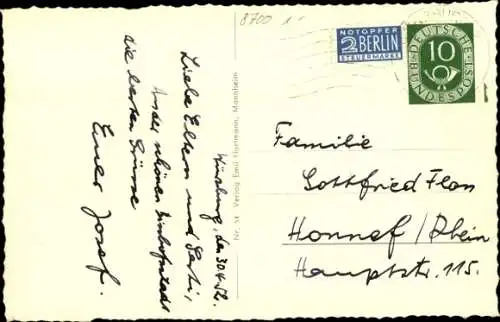 8700 1-
NOTOPFER
2 BERLIN
STEUERMARKE
DEUTSCHE
10
BUNDESPOST
Würzburg, den 30.4.52.
Liebe Eltern und Gerti,
Aus der schönen Bischofsstadt
die besten Grüsse
Euer Josef.
Nr. 54 Verlag Emil Hartmann, Mannheim
Familie
Gottfried Flon
Honnef/Rhein
Hauptstr. 115.